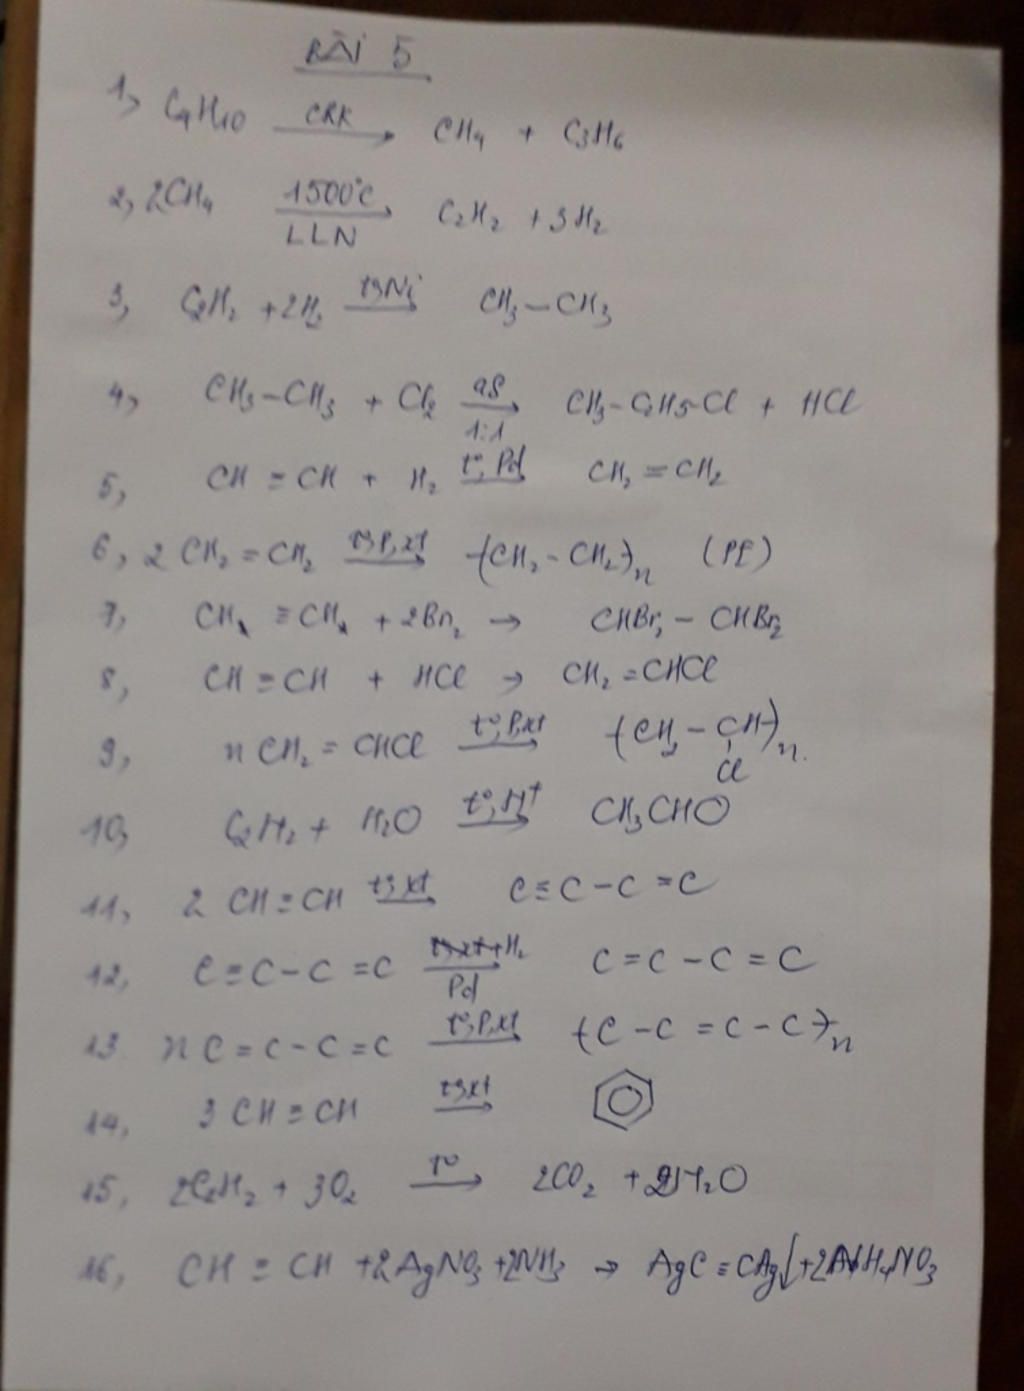 BÀI 5
1, C₄H₁₀ —CRK→ CH₄ + C₃H₆
2, 2CH₄ —1500°C / LLN→ C₂H₂ + 3H₂
3, C₂H₂ + 2H₂ —t°, Ni→ CH₃–CH₃
4, CH₃–CH₃ + Cl₂ —as / 1:1→ CH₃–C₂H₅–Cl + HCl
5, CH≡CH + H₂ —t°, Pd→ CH₂=CH₂
6, 2 CH₂=CH₂ —t°, P, xt→ -(CH₂–CH₂)n (PE)
7, CH≡CH + 2Br₂ → CHBr₂–CHBr₂
8, CH≡CH + HCl → CH₂=CHCl
9, n CH₂=CHCl —t°, P, xt→ -(CH₂–CH)n
Cl
10, C₂H₂ + H₂O —t°, H⁺→ CH₃CHO
11, 2 CH≡CH —t°, xt→ C≡C–C=C
12, C≡C–C=C —+H₂ / Pd→ C=C–C=C
13. n C=C–C=C —t°, P, xt→ -(C–C=C–C)n
14, 3 CH≡CH —t°, xt→
15, 2C₂H₂ + 3O₂ —t°→ 2CO₂ + 2H₂O
16, CH≡CH + 2AgNO₃ + 2NH₃ → AgC≡CAg↓ + 2NH₄NO₃